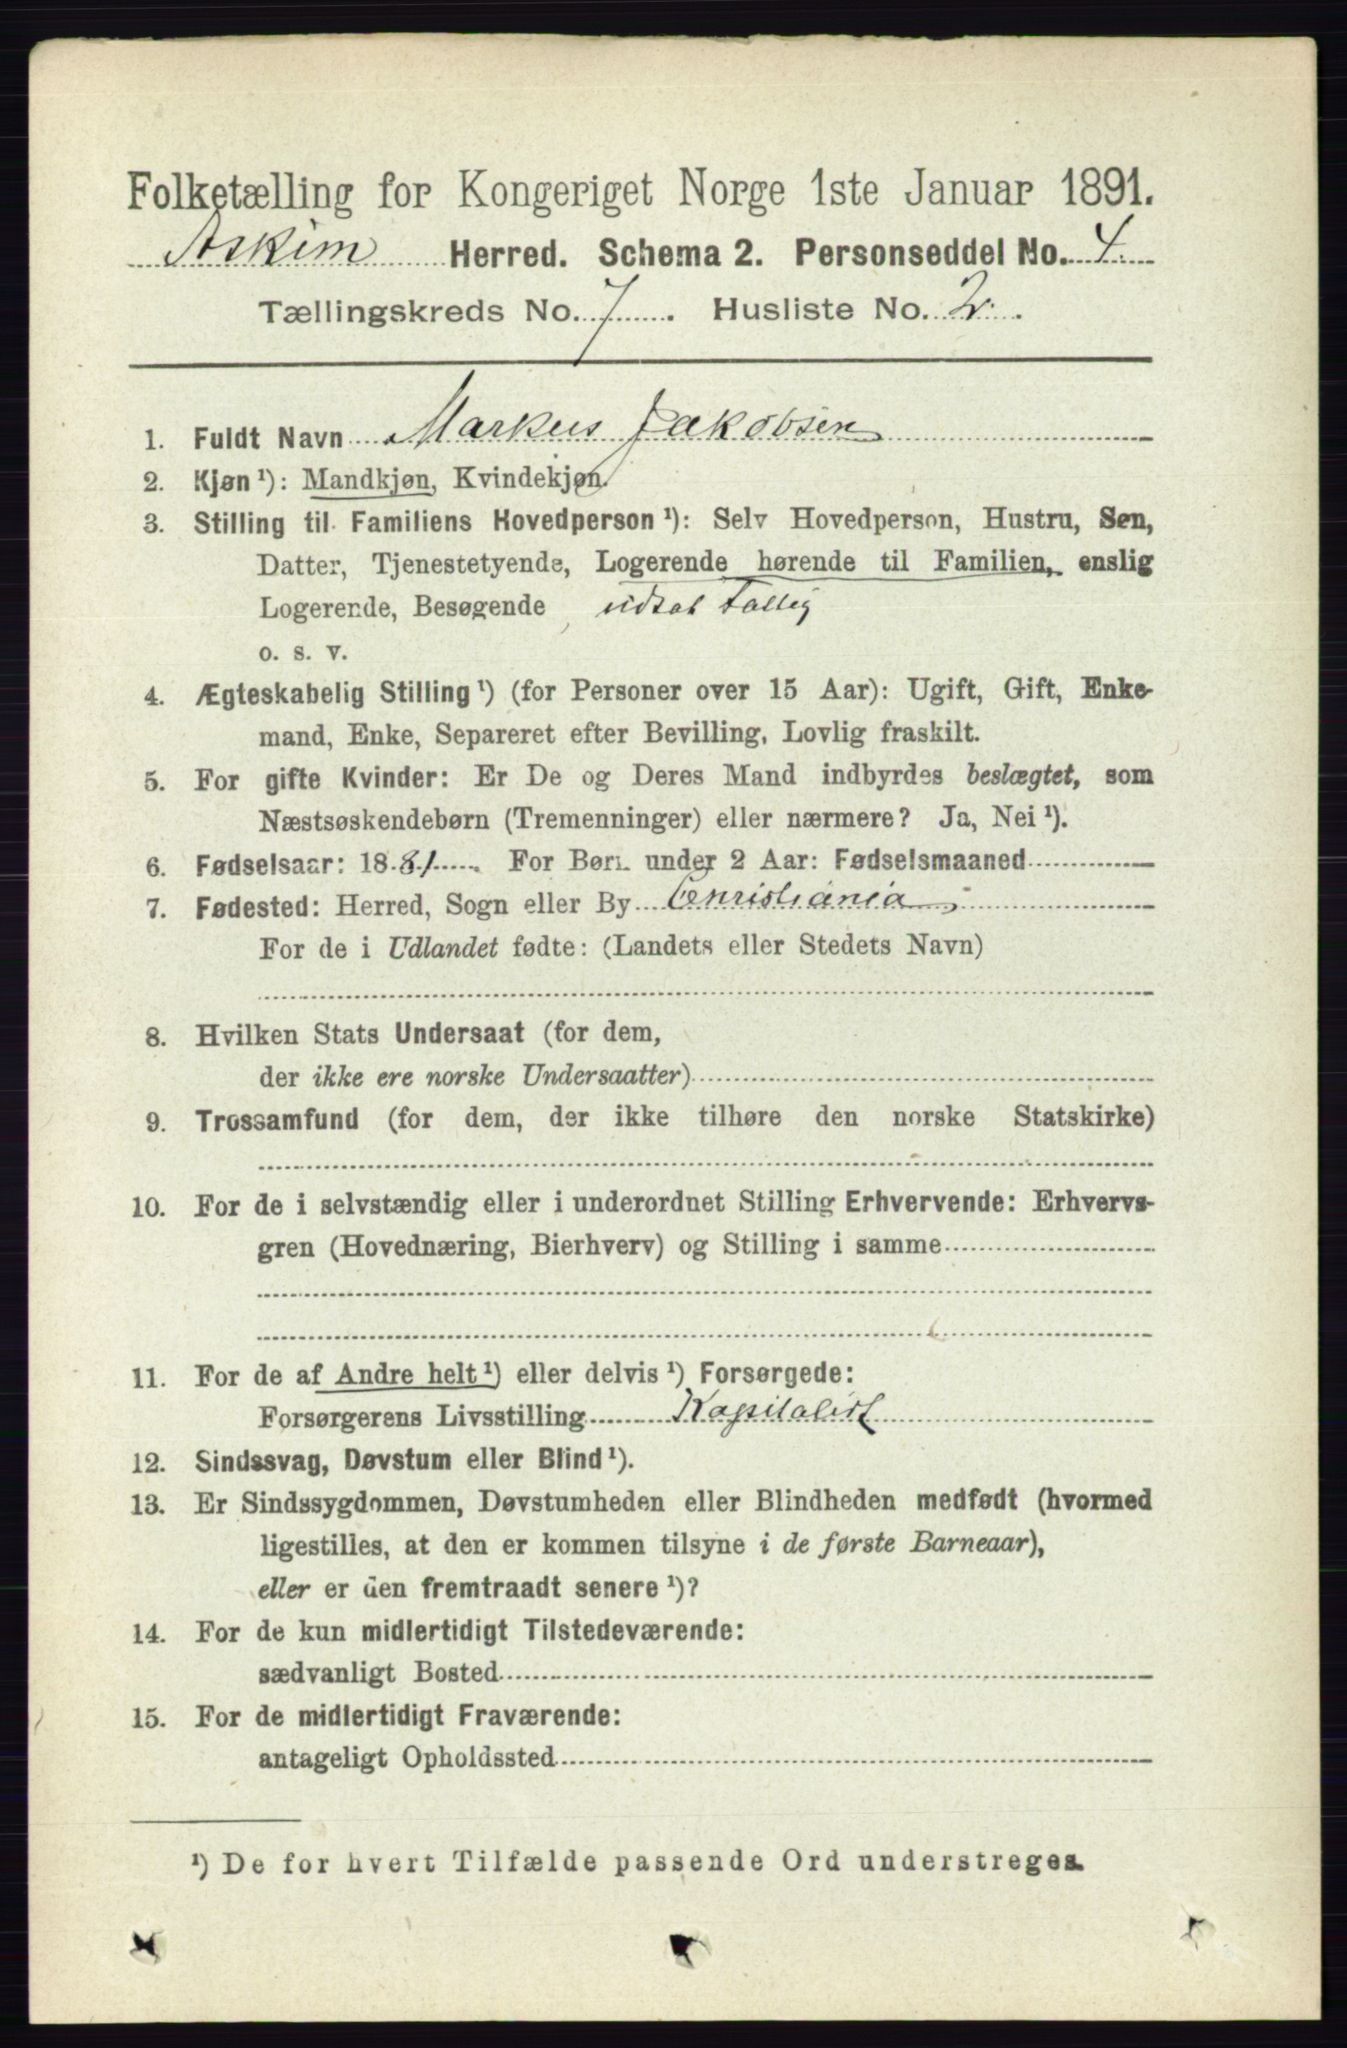 Folketælling for Kongeriget Norge 1ste Januar 1891.
Askim Herred. Schema 2. Personseddel No. 4.
Tællingskreds No. 7. Husliste No. 2.
1. Fuldt Navn Markus Jakobsen
2. Kjøn ¹): Mandkjøn, Kvindekjøn.
3. Stilling til Familiens Hovedperson ¹): Selv Hovedperson, Hustru, Søn,
Datter, Tjenestetyende, Logerende hørende til Familien, enslig
Logerende, Besøgende udsat Fattig
o. s. v.
4. Ægteskabelig Stilling ¹) (for Personer over 15 Aar): Ugift, Gift, Enke-
mand, Enke, Separeret efter Bevilling, Lovlig fraskilt.
5. For gifte Kvinder: Er De og Deres Mand indbyrdes beslægtet, som
Næstsøskendebørn (Tremenninger) eller nærmere? Ja, Nei ¹).
6. Fødselsaar: 1881. For Børn under 2 Aar: Fødselsmaaned
7. Fødested: Herred, Sogn eller By Christiania
For de i Udlandet fødte: (Landets eller Stedets Navn)
8. Hvilken Stats Undersaat (for dem,
der ikke ere norske Undersaatter)
9. Trossamfund (for dem, der ikke tilhøre den norske Statskirke)
10. For de i selvstændig eller i underordnet Stilling Erhvervende: Erhvervs-
gren (Hovednæring, Bierhverv) og Stilling i samme
11. For de af Andre helt ¹) eller delvis ¹) Forsørgede:
Forsørgerens Livsstilling Kapitalist
12. Sindssvag, Døvstum eller Blind ¹).
13. Er Sindssygdommen, Døvstumheden eller Blindheden medfødt (hvormed
ligestilles, at den er kommen tilsyne i de første Barneaar),
eller er den fremtraadt senere ¹)?
14. For de kun midlertidigt Tilstedeværende:
sædvanligt Bosted
15. For de midlertidigt Fraværende:
antageligt Opholdssted
¹) De for hvert Tilfælde passende Ord understreges.